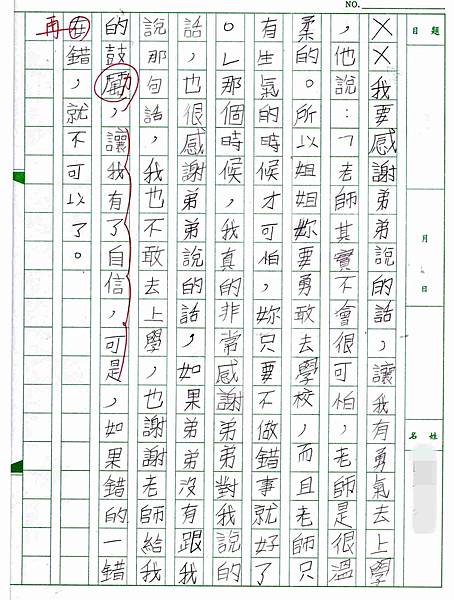 NO.
題目
月 日
姓名
××我要感謝弟弟說的話，讓我有勇氣去上學
，他說：「老師其實不會很可怕，老師是很溫
柔的。所以姐姐妳要勇敢去學校，而且老師只
有生氣的時候才可怕，妳只要不做錯事就好了
。」那個時候，我真的非常感謝弟弟對我說的
話，也很感謝弟弟說的話，如果弟弟沒有跟我
說那句話，我也不敢去上學，也謝謝老師給我
的鼓勵，讓我有了自信，可是，如果錯的一錯
在錯，就不可以了。
再